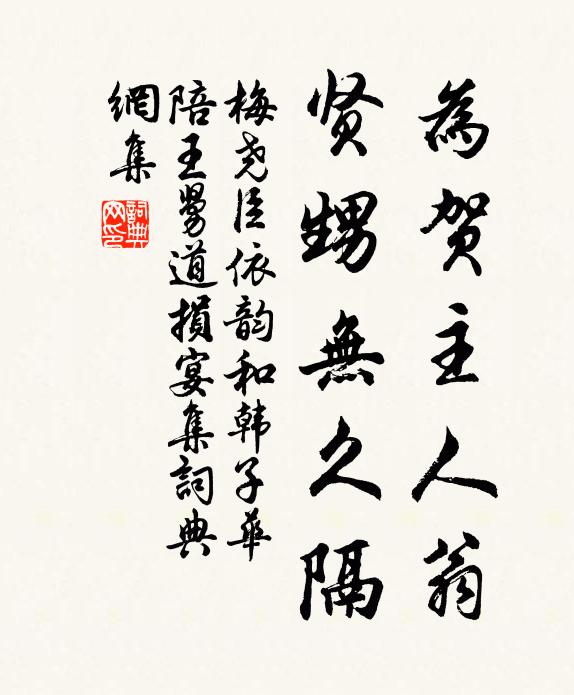 為贺主人翁
贤甥無久隔
梅尧臣依韵和韩子華
陪王舅道損宴集詞典
網集
詞典网印